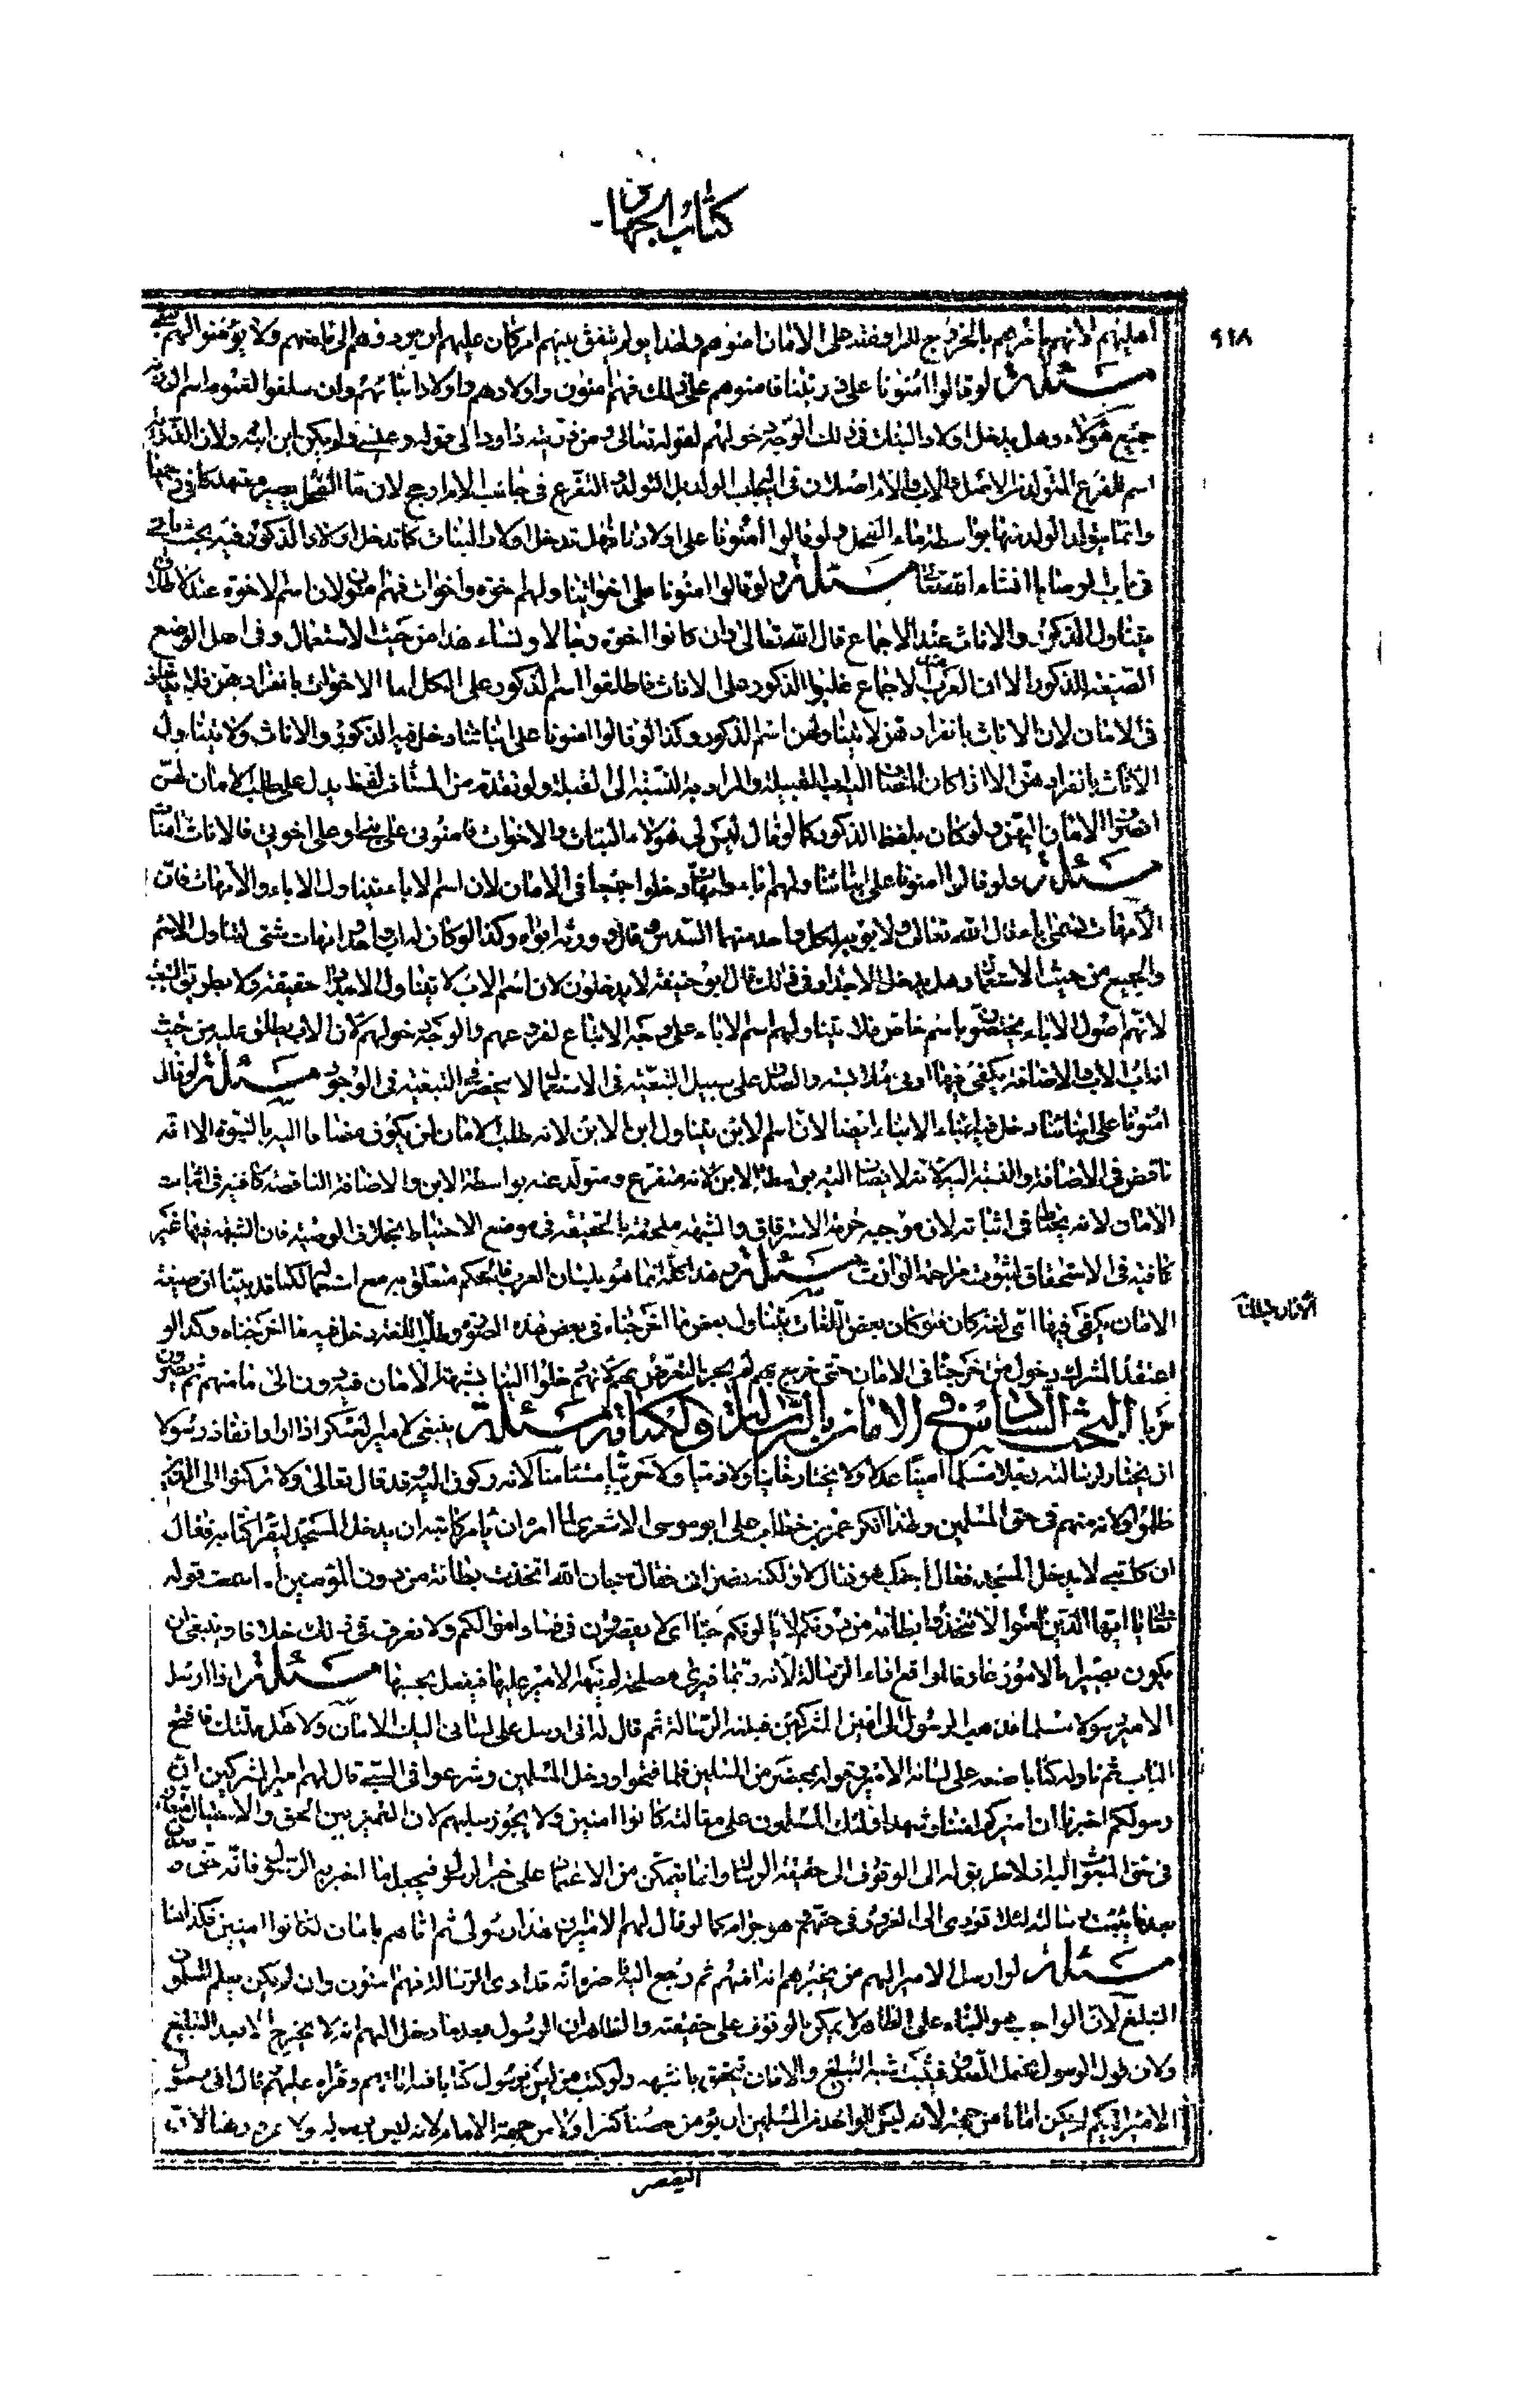 كتاب الجهاد
٩١٨
مسئلة لو قالوا امنونا على ذريتنا فامنوهم على ذلك فهم امنون واولادهم واولاد ابنائهم وان سفلوا لعموم اسم الذرية
جميع هؤلاء وهل يدخل اولاد البنات في ذلك الوجه دخولهم لقوله تعالى ومن ذريته داود الى قوله وعيسى ولم يكن ابن ابنه ولان الذرية
اسم للفرع المتولد من الاصل والاب والام اصلان في ايجاب الولد بل التولد والتفرع في جانب الام ارجح لان ماء الفحل يصير مستهلكا في رحمها
وانما يتولد الولد منها بواسطة ماء الفحل ولو قالوا امنونا على اولادنا فهل تدخل اولاد البنات كما تدخل اولاد الذكور فيه بحث ياتي
في باب الوصايا انشاء الله تعالى مسئلة ولو قالوا امنونا على اخواننا ولهم اخوة واخوات فهم امنون لان اسم الاخوة عند الاطلاق
يتناول الذكور والاناث عند الاجتماع قال الله تعالى وان كانوا اخوة رجالا ونساء هذا من حيث الاستعمال وفي اصل الوضع
الصيغة للذكور الا ان العرب عند الاجتماع غلبوا الذكور على الاناث فاطلقوا اسم الذكور على الكل اما الاخوات بانفرادهن فلا يدخلن
في الامان لان الاناث بانفرادهن لا يتناولهن اسم الذكور وكذا لو قالوا امنونا على ابنائنا دخل فيه الذكور والاناث ولا يتناول
الاناث بانفرادهن الا اذا كان المضاف اليه اب القبيلة والمراد به النسبة الى القبيلة ولو تقدم من المستامن لفظ يدل على طلب الامان لهن
انصرف الامان اليهن ولو كان بلفظ الذكور كما لو قال ليس لي الا هؤلاء البنات والاخوات فامنوني على بني او على اخوتي فالاناث امنات
مسئلة ولو قالوا امنونا على ابائنا ولهم اباء وامهات دخلوا جميعا في الامان لان اسم الاباء يتناول الاباء والامهات فان
الامهات تسمى اباء قال الله تعالى ولابويه لكل واحد منهما السدس وقال وورثه ابواه وكذا لو كان لهم اب واحد وامهات شتى لتناول الاسم
والجميع من حيث الاستعمال وهل يدخل الاجداد في ذلك قال ابو حنيفة لا يدخلون لان اسم الاب لا يتناول الاجداد حقيقة ولا بطريق التبعية
لانهم اصول الاباء يختصون باسم خاص فلا يتناولهم اسم الاباء على وجه الاتباع لفروعهم والوجه دخولهم لان الاب يطلق عليه من حيث
انه اب الاب والاضافة يكفي فيها ادنى ملابسة والصدق على سبيل التبعية في الاستعمال لا يقتضي التبعية في الوجود مسئلة لو قالوا
امنونا على ابنائنا دخل فيه ابناء الابناء ايضا لان اسم الابن يتناول ابن الابن لانه طلب الامان لمن يكون مضافا اليه بالبنوة الا انه
ناقص في الاضافة والنسبة اليه لانه لا يضاف اليه بواسطة الابن لانه متفرع ومتولد عنه بواسطة الابن والاضافة الناقصة كافية في اثبات
الامان لانه يحتاط في اثباته لان موجبه حرمة الاسترقاق والشبهة ملحقة بالحقيقة في موضع الاحتياط بخلاف الوصية فان الشبهة فيها غير
كافية في الاستحقاق لثبوت مزاحمة الوارث مسئلة وهذا كله انما هو بلسان العرب فالحكم متعلق به مع استعماله لكنا قد بينا ان صيغة
الامان يكفي فيها اي لغة كان فلو كان بعض اللغات يتناول بعض ما اخرجناه في بعض هذه الصور وطلب بتلك اللغة دخل فيه ما اخرجناه وكذا لو
اعتقد المشرك دخول من اخرجنا في الامان حتى خرج بهم لم يجز التعرض بهم لانهم دخلوا الينا بشبهة الامان فيردون الى مامنهم ثم يصيرون
حربا البحث السادس في الامان بالرسالة والكتابة مسئلة ينبغي لامير العسكر اذا اراد انفاذ رسولا
ان يختار لرسالته رجلا مسلما امينا عدلا ولا يختار خاينا ولا ذميا ولا حربيا مستامنا لانه ركون اليه وقد قال تعالى ولا تركنوا الى الذين
ظلموا ولانه متهم في حق المسلمين ولهذا انكر عمر بن خطاب على ابو موسى الاشعري لما امره ان يامر كاتبه ان يدخل المسجد ليقرا كتابه فقال
ان كاتبي لا يدخل المسجد فقال اجنب هو فقال لا ولكنه نصراني فقال سبحان الله اتخذت بطانة من دون المؤمنين اما سمعت قوله
تعالى يا ايها الذين امنوا لا تتخذوا بطانة من دونكم لا يالونكم خبالا اي لا يقصرون في فساد اموالكم ولا نعرف في ذلك خلافا وينبغي ان
يكون بصيرا بالامور عارفا بمواقع اداء الرسالة لانه ربما فيرى مصلحة لم يتنبه الامير عليها فيفعل بحسبها مسئلة اذا ارسل
الامير رسولا مسلما فذهب الرسول الى امير المشركين فبلغه الرسالة ثم قال له اني ارسل على لساني اليك الامان ولاهل مملكتك فافتح
الباب ثم ناوله كتابا صنعه على لسان الامير وقوله بمحضر من المسلمين فلما فتحوا ودخل المسلمين وشرعوا في السبي قال لهم امير المشركين ان
رسولكم اخبرنا ان اميركم امننا وشهد اولئك المسلمون على مقالته كانوا امنين ولا يجوز سبيهم لان التمييز بين الحق والاحتيال متعذر
في حق المبعوث اليه اذ لا طريق له الى الوقوف الى حقيقة الرسالة وانما يتمكن من الاعتماد على خبر الرسول فيجعل ما اخبر به الرسول فانه حق وصدق
بعد ما يثبت رسالته لئلا تؤدي الى الغرور في حقهم وهو حرام كما لو قال لهم الامير ان هذا رسولي ثم اتاهم بامان لكانوا امنين فكذا هنا
مسئلة لو ارسل الامير اليهم من يخبرهم انه امنهم ثم رجع اليه فاخبره انه قد ادى الرسالة فهم امنون وان لم يكن يعلم المسلمون
التبليغ لان الواجب هو البناء على الظاهر لا يمكن الوقوف على حقيقته والظاهر ان الرسول بعد ما دخل اليهم انه لا يخرج الا بعد التبليغ
ولان قول الرسول يحتمل الصدق فيثبت شبهة التبليغ والامان يتحقق بالشبهة ولو كتب من ليس برسول كتابا فيه امانهم وقراه عليهم وقال اني رسول
الامير اليكم لم يكن امانا من جهته لانه ليس للواحد من المسلمين ان يؤمن حصنا كبيرا ولا من جهة الامام لانه ليس برسوله